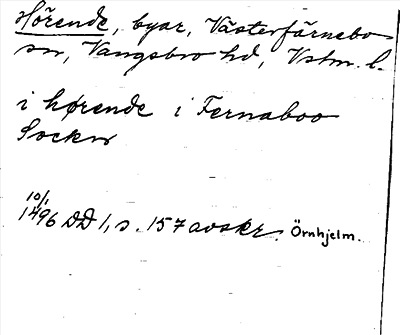 Hörende, byar, Västerfärnebo
sn, Vangsbro hd, Vstm. l.
i hørende i Fernaboo
Socken
10/1
1496 DD 1, s. 157 avskr. Örnhjelm.